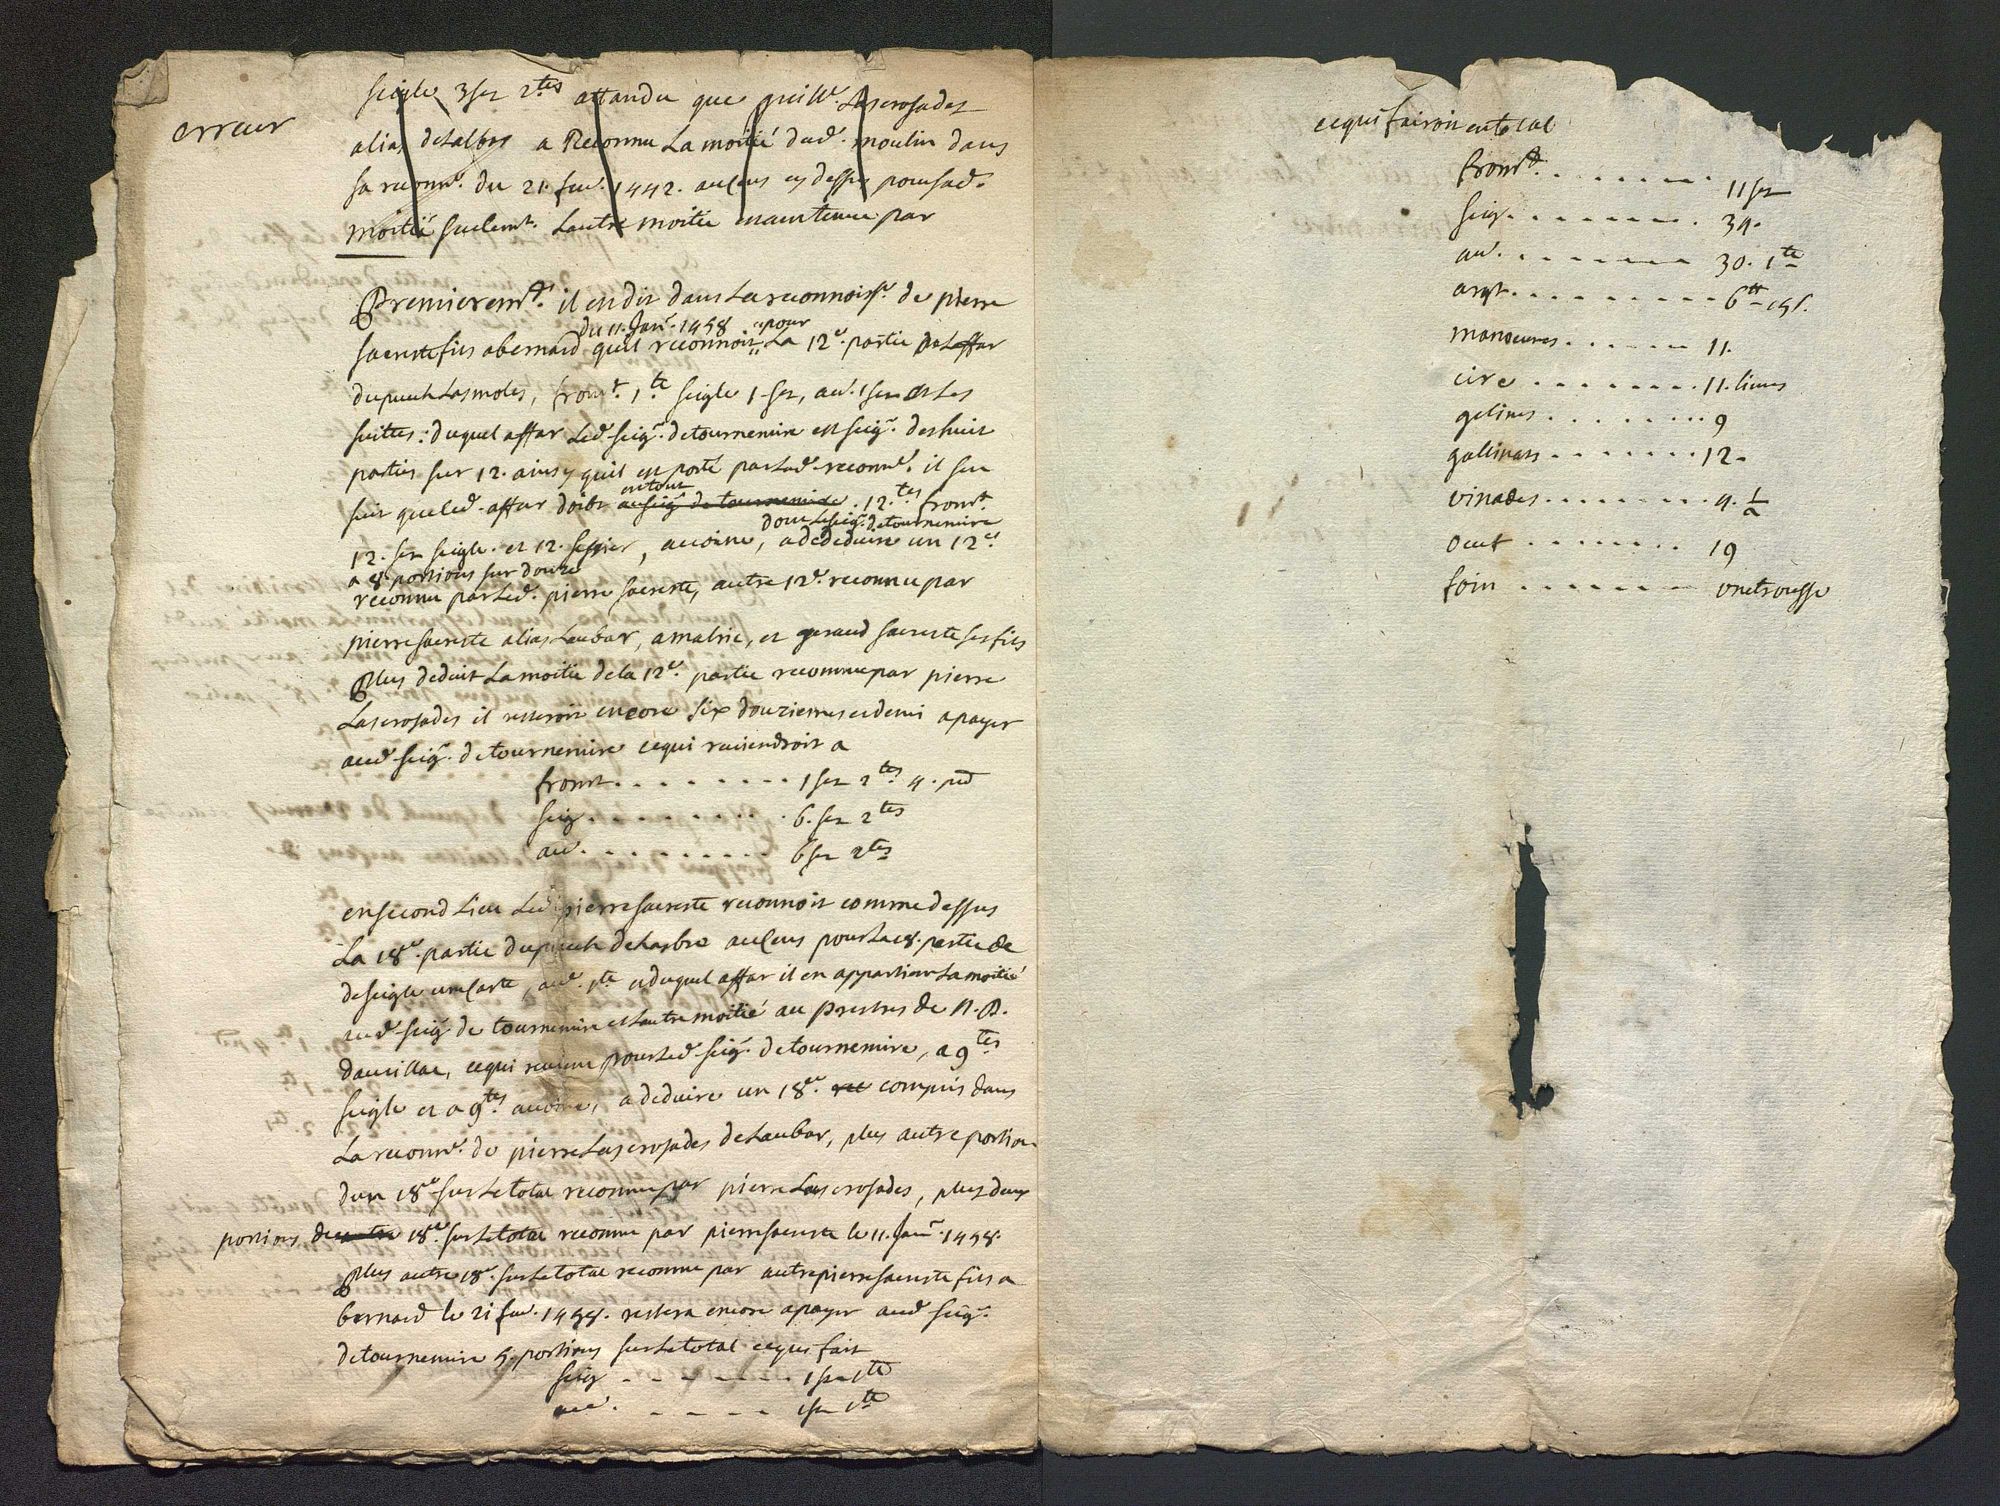 erreur
seigle 3 sez 2tes attandu que guille. Lascrosades
alias delalbre a Reconnu La moitié dud. moulin dans
sa reconn.e du 21. fev.r 1442. au cens cy dessus pour sad.
moitié seulemt. Lautre moitie maintenue par
Premierement. il est dit dans La reconnoisse. de pierre
du 11. Janr. 1458 pour
sacreste fils a bernard quil reconnoit La 12e. partie de Laffar
dupuech Lasmoles, fromt. 1te seigle 1 sez, av. 1 sez et Les
suittes: duquel affar Led. seigr. detournemire est seigr. des huit
parties sur 12. ainsy quil est porté par Lad. reconne. il sen
entout
suit que led. affar doibt au seigr de tournemire. 12.tes fromt.
dont Leseigr. detournemire
12. sez seigle. et 12. sestier, avoine, a dededuire un 12e.
a 8. portions sur douze
reconnu par Led. pierre sacreste, autre 12e. reconnu par
pierre sacreste alias Laubar, amalric, et geraud sacreste ses fils
Plus deduit La moitie de la 12e. partie reconnue par pierre
Lascrosades il resteroit encore six douziemes et demi a payer
aud. seigr. detournemire cequi reviendroit a
fromt. . . . . . . . . 1 sez 2tes 4. pd
seig . . . . . . . . . 6. sez 2tes
av. . . . . . . . . . 6 sez 2tes
ensecond Lieu Led. pierre sacreste reconnoit comme dessus
La 18e. partie dupuech delarbre au cens pour La 18. partie de
de seigle une carte, av. 1te duquel affar il en appartient La moitié
aud. seigr de tournemire et Lautre moitié au prestres de N. D.
daurillac, cequi revient pour Led. seigr. detournemire, a 9tes
seigle et a 9tes avoine, a deduire un 18e. compris dans
La reconne. de pierre Lascrosades de Laubar, plus autre portion
dun 18e sur Le total reconnu par pierre Lascrosades, plus deux
portions de 18e. sur Le total reconnu par pierre sacreste le 11. Janr. 1458.
Plus autre 18e. sur Le total reconnu par autre pierre sacreste fils a
bernard le 21 fev. 1458. restera encore a payer aud. seigr.
detournemire 5. portions sur Le total cequi fait
seig . . . . . . . 1 sez 1te
av. . . . . . 1 sez 1te
cequi fairoit en total
fromt. . . . . . . . 11 sez
seig. . . . . . . . . 34.
av. . . . . . . . 30. 1te
argt. . . . . . . . . 6tt 15s.
manoeuvres. . . . . . 11.
cire . . . . . . . . 11. livres
gelines . . . . . . . . 9
gallinats . . . . . . . 12.
vinades. . . . . . . . 4. 1/2
oeuf . . . . . . . . 19
foin . . . . . . . une trousse